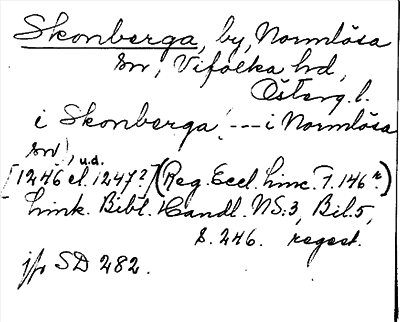 Skonberga, by, Normlösa
sn, Vifolka hd,
Österg. l.
i Skonberga! --- i Normlösa
sn!, u.d.
[1246 el. 1247?] (Reg. Eccl. Linc. F. 146 r.)
Link. Bibl. Handl. NS:3, Bil. 5,
S. 246. regest.
jfr SD 282.